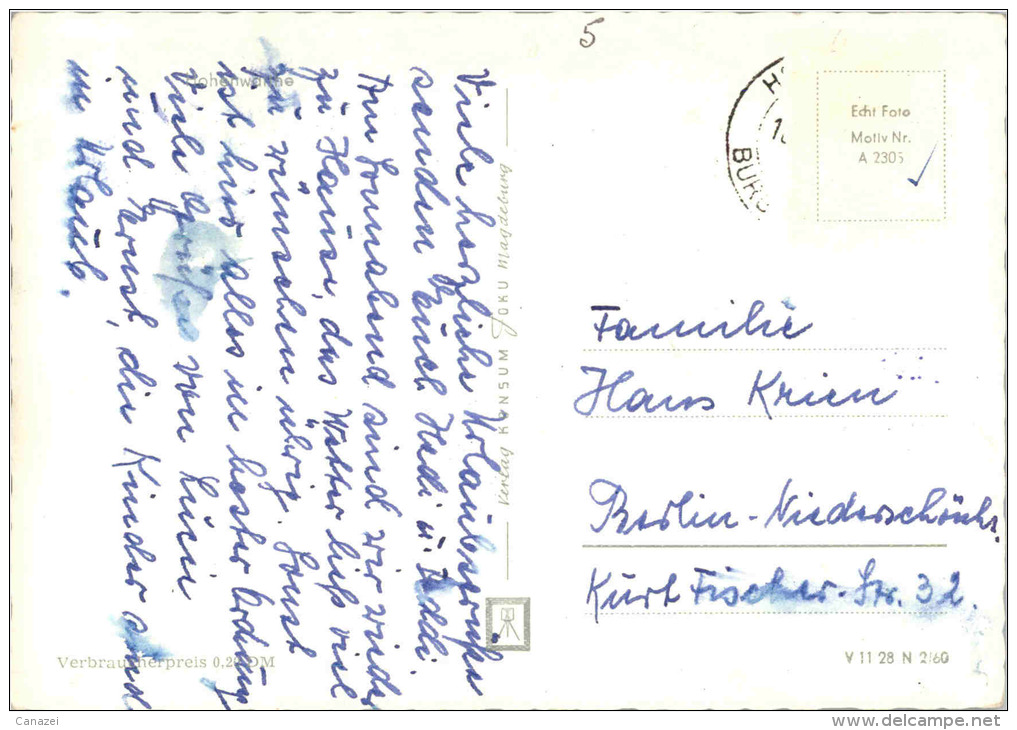 5
Hohenwarthe
Viele herzliche Urlaubsgrüße
senden Euch Hedi u. Teddi.
Am Sonnabend sind wir wieder
zu Hause, das Wetter ließ viel
zu wünschen übrig. Sonst
ist hier alles in bester Ordnung
Viele Grüße von
und Ernst, die Kinder sind
im Urlaub.
Verbraucherpreis 0,20 DM
Verlag KONSUM FOKU Magdeburg
BURG
Echt Foto
Motiv Nr.
A 2305
Familie
Hans Krien
Berlin-Niederschönh.
Kurt Fischer-Str. 32.
V 11 28 N 2/60
Canazei
www.delcampe.net